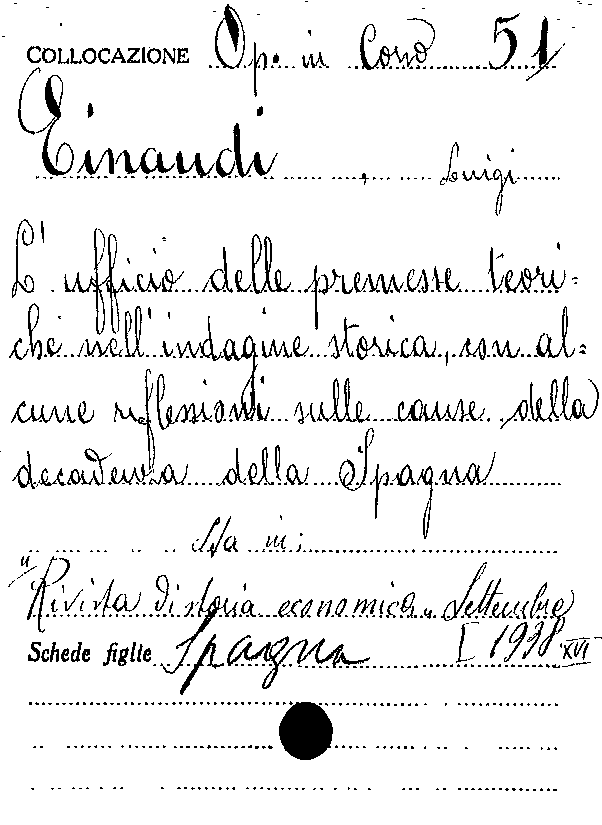 COLLOCAZIONE Op. in Cons 51
Einaudi, Luigi
L'ufficio delle premesse teori=
che nell'indagine storica, con al=
cune riflessioni sulle cause della
decadenza della Spagna
Sta in:
"Rivista di storia economica" Settembre
Schede figlie Spagna I 1938 XVI